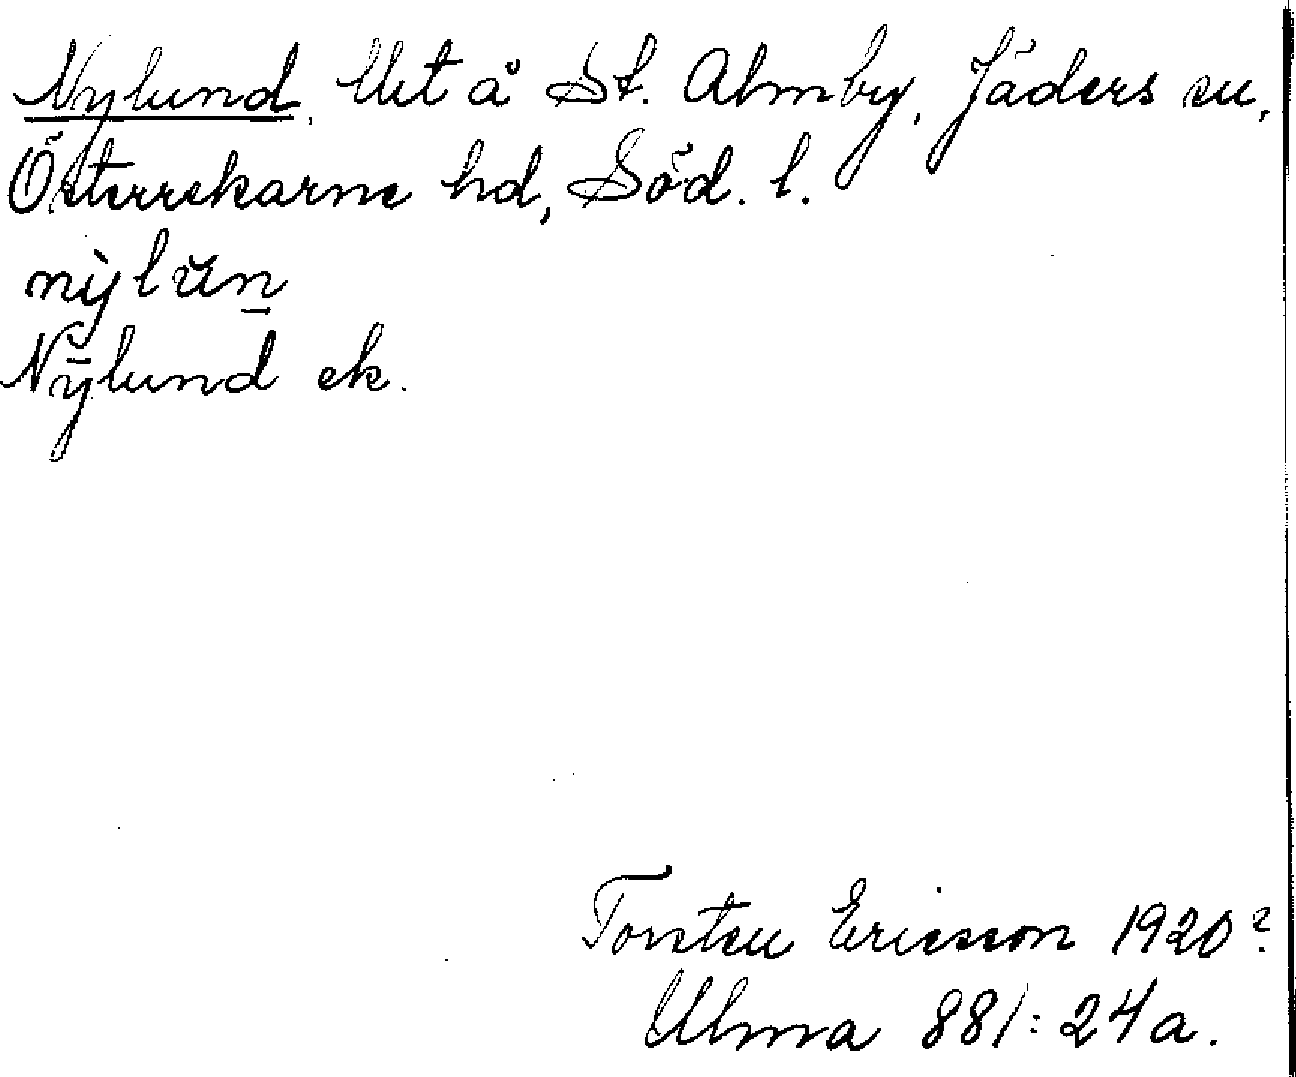 Nylund, Utt å St. Almby, Jäders sn,
Österrekarne hd, Söd. l.
nỳlŭn̲
Nȳlund ek.
Torsten Ericsson 1920?
Ulma 881:24a.